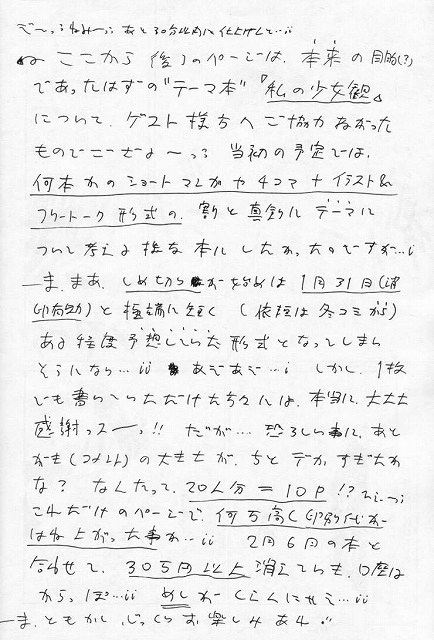 で〜っうねみ〜っ あと30分以内に仕上げんと…ii
ここから後ろのページは、本来の目的(?)
であったはずの"テーマ本"『私の少女観』
について、ゲスト様方へご協力ねがった
ものでございますよ〜っっ 当初の予定では、
何本かのショートマンガや4コマ+イラスト&
フリートーク形式の、割と真剣にテーマに
ついて考える様な本にしたかったのですが…i
ーま、まあ、しめ切りが始めは1月31日(消
印有効)と極端に短く(依頼は冬コミから)
ある程度予想していた形式となってしまい
そうになら…ii あぞあぞ…i しかし、1枚
でも書いていただけた方々には、本当に、大大大
感謝っスーっ!! だが…恐ろしい事に、あと
がき(コメント)の大きさが、ちとデカすぎたか
な? なんたって、20人分=10P!? ひぃ〜っ
これだけのページで、何万高く印刷代が
はね上がった事か…ii 2月6日の本と
合せて、30万円以上消えていき、口座は
からっぽ…ii めしがくえんにゃえ…ii
ーま、ともかく、じっくりお楽しみあれ。